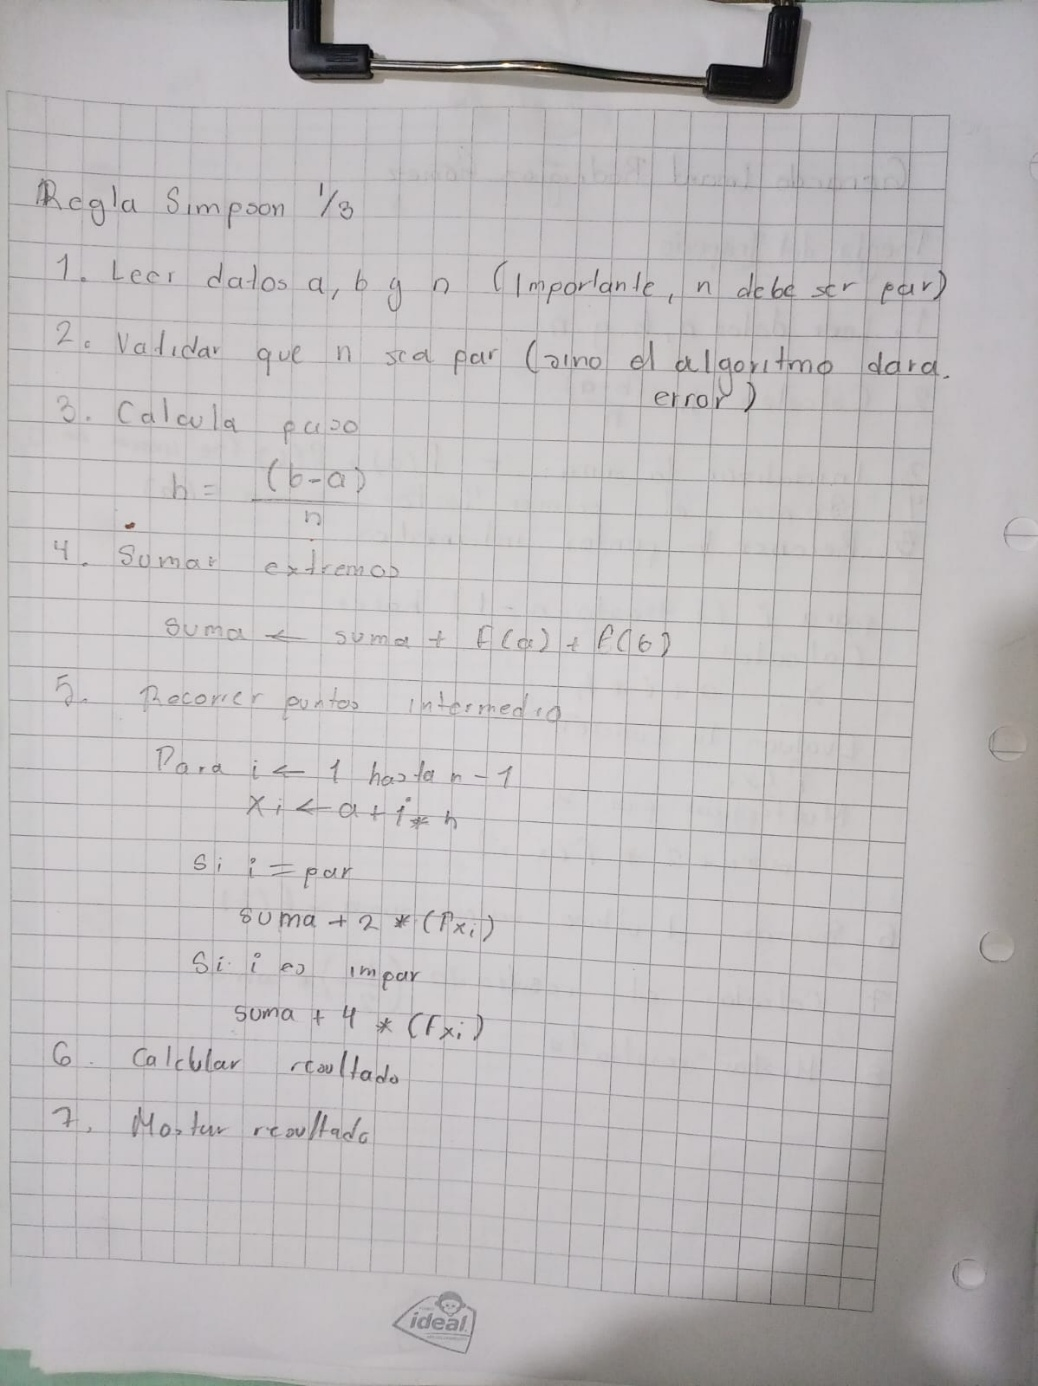 Regla Simpson 1/3
1. Leer datos a, b y n (Importante, n debe ser par)
2. Validar que n sea par (sino el algoritmo dara.
error)
3. Calcula paso
h = (b-a)
n
4. Sumar extremos
suma ← suma + f(a) + f(b)
5. Recorrer puntos intermedio
Para i ← 1 hasta n - 1
xi ← a + i * h
Si i = par
suma + 2 * (fxi)
Si i es impar
suma + 4 * (fxi)
6. Calcular resultado
7. Mostrar resultado
ideal